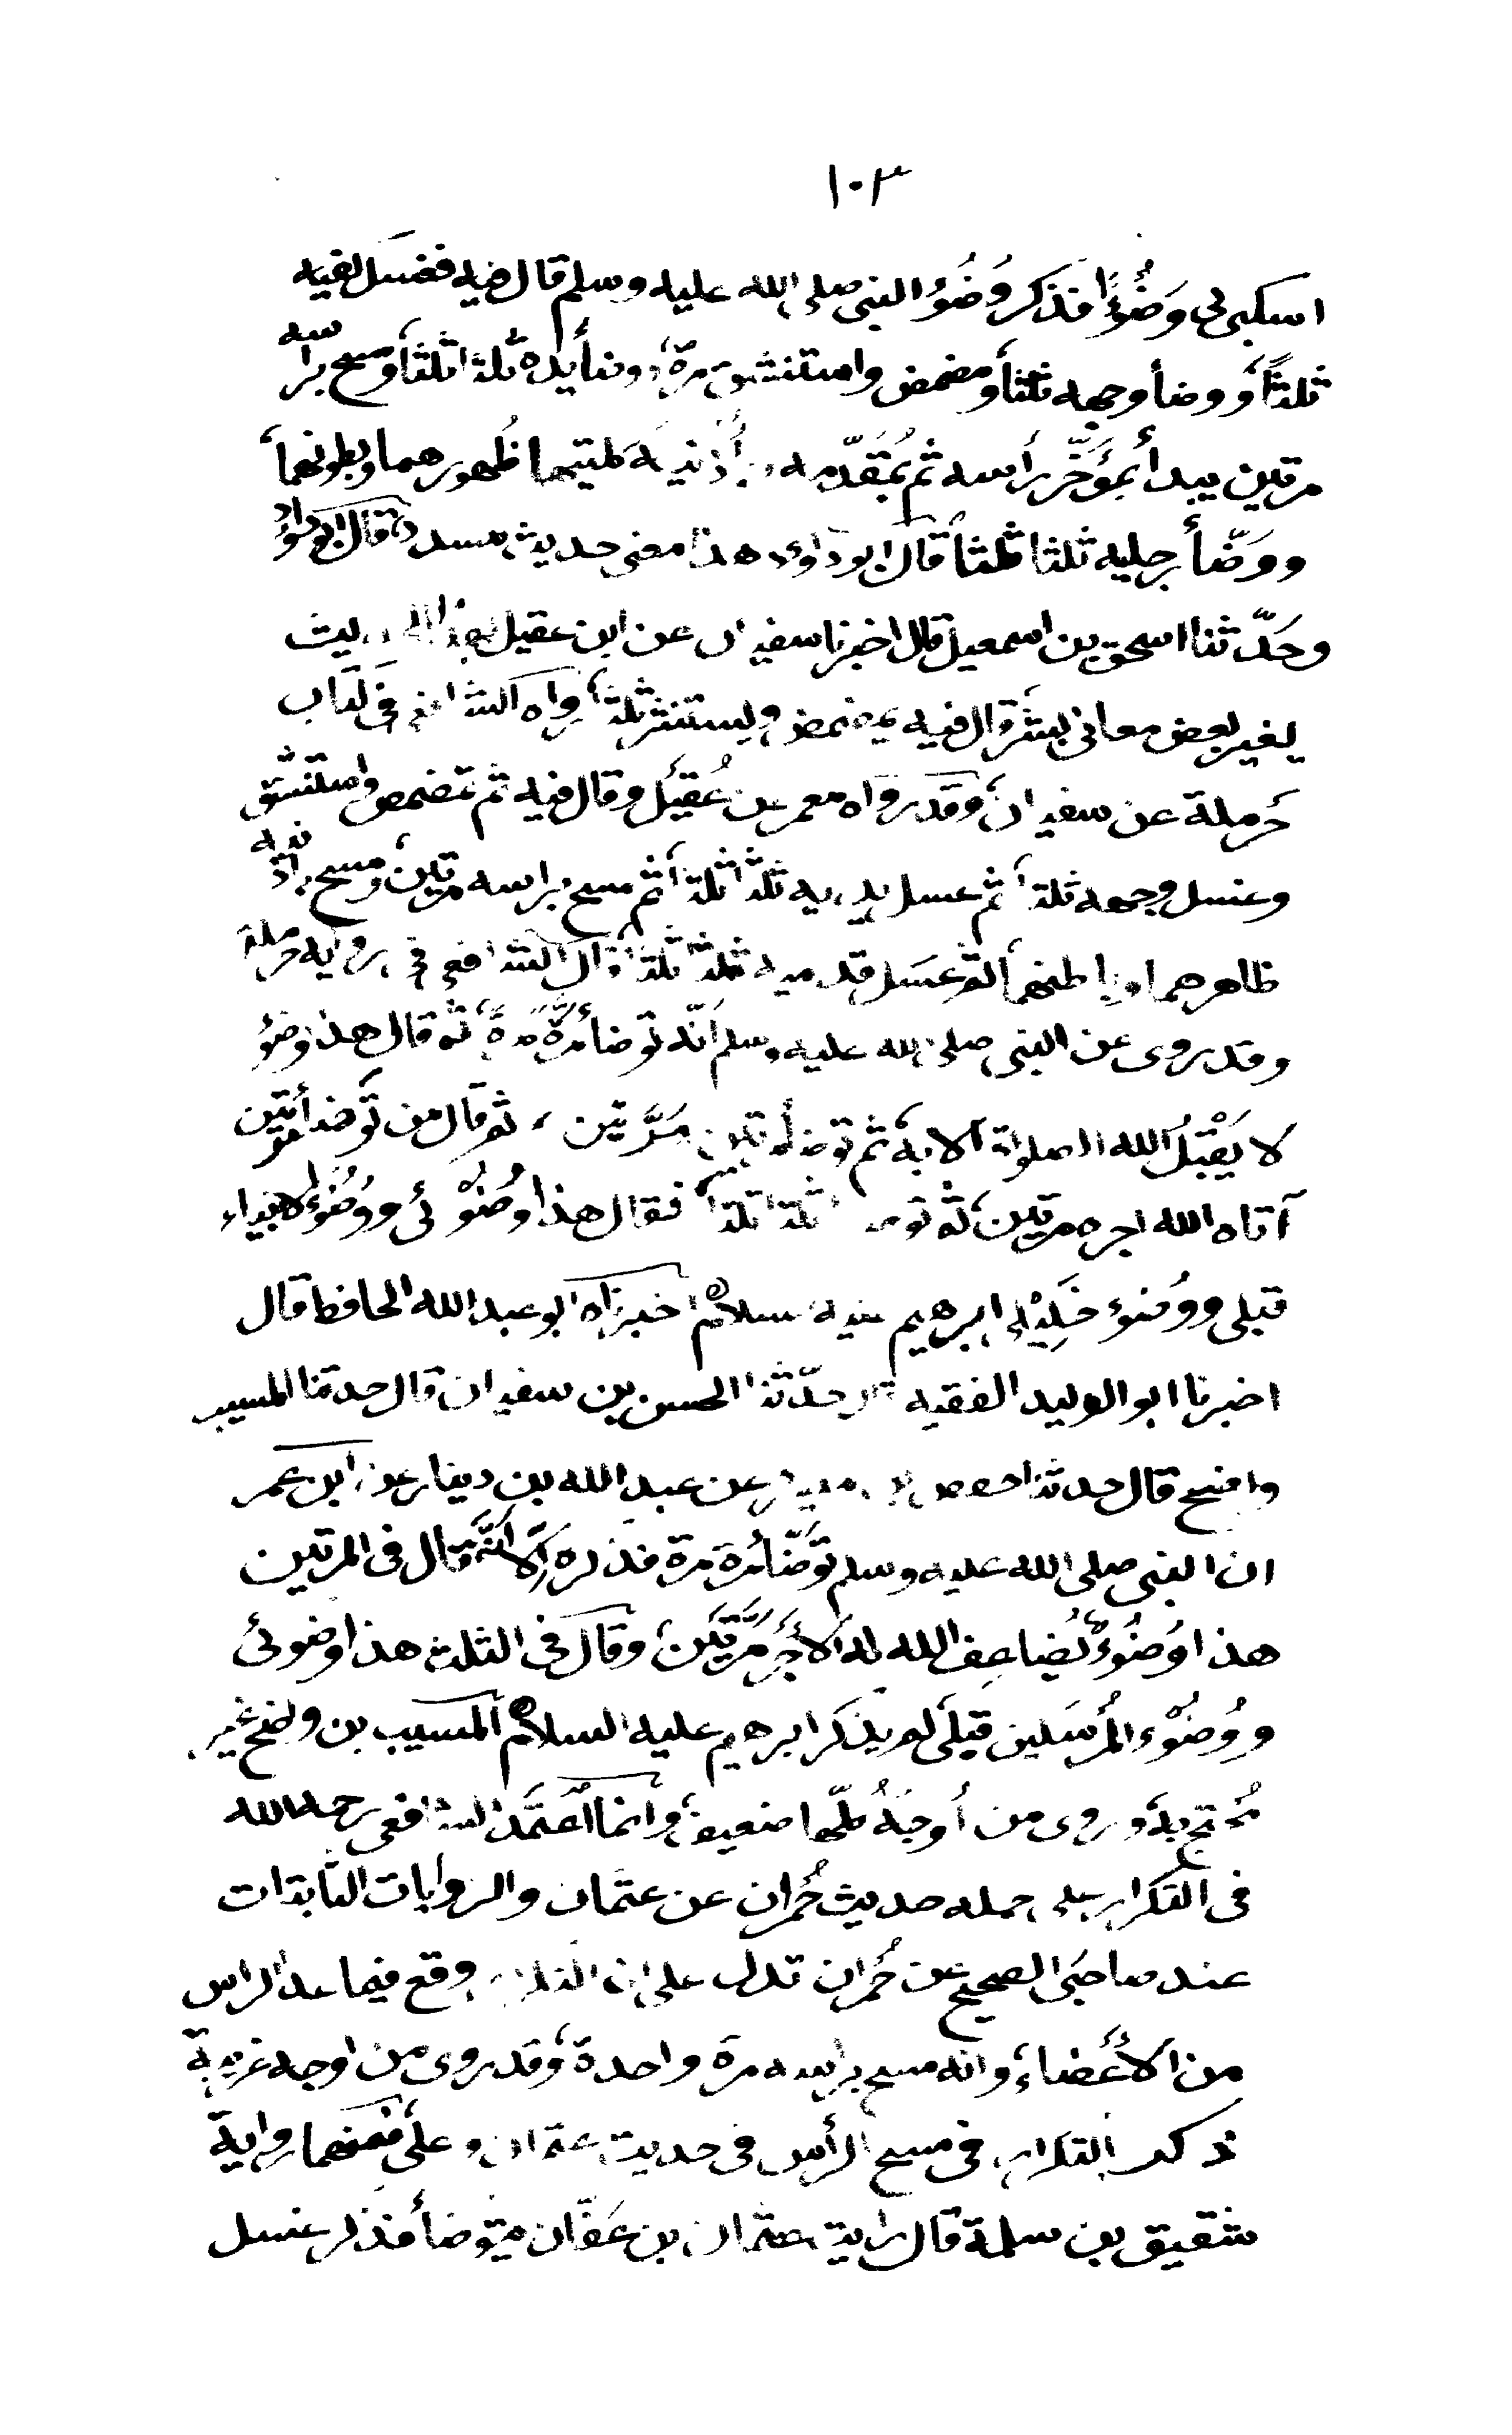 ١٠٣
اسكبى لى وَضُوْءًا فذكر وُضُوُ النبى صلى الله عليه وسلم قال فيه فغسل كفيه
ثلثًا، ووضأ وجهه ثلثًا ومضمض واستنشق مرة، ووضأ يده ثلثا ثلثاً ومسح براسه
مرتين يبدأ بمؤَخَّر رأسه ثم بمُقَدّمه وبأُذنيه كلتيهما ظُهورهما وبطونهما
ووَضّأ رجليه ثلثا ثلثاً قال ابو داؤد هذا معنى حديث مسدد، قال ابو داؤد
وحَدّثنا اسحق بن اسمعيل قال اخبرنا سفيان عن ابن عقيل بهذا الحديث
يغير بعض معانى بشر قال فيه يمضمض ويستنثر ثلثا، رواه الشافعى فى كتاب
حَرملة عن سفيان، وقد رواه معمر عن عُقَيل وقال فيه ثم تمضمض واستنشق
وغسل وجهه ثلثاً ثم غسل يديه ثلثا ثلثا ثم مسح براسه مرتين، ومسح باذنيه
ظاهرهما وباطنهما ثم غسَل قدميه ثلثا ثلثا، قال الشافعى فى رواية حرملة
وقد روى عن النبى صلى الله عليه وسلم انّه توضأ مرَّة مَرة، ثم قال هذا وضوُ
لا يَقْبَلُ الله الصلواة الا به، ثم توضأ مرتين مَرَّتين، ثم قال من توضأ مرتين
آتاه الله اجره مرتين، ثم توضأ ثلثا ثلثا، فقال هذا وضُوْئى ووُضُوْء الانبياء
قبلى ووُضوء خَلِيْل ابرهيم عليه السلام اخبرناه ابو عبد الله الحافظ قال
اخبرنا ابو الوليد الفقيه قال حدّثنا الحسن بن سفيان قال حدثنا المسيب
واضح قال حدثنا حفص بن ميسرة عن عبد الله بن دينار عن ابن عمر
ان النبى صلى الله عليه وسلم توَضّأ مرة مرة فذكره إلا انَّه قال فى المرتين
هذا وُضُوْءٌ يُضاعِف الله له الأجْرَ مَرَّتَين، وقال فى الثلث هذا وضوئى
ووُضوْء المُرسَلين قبلى لم يذكر ابرهيم عليه السلام المسيب بن واضح غير
مُحتج به، وروى من أوجهُ كلّها ضعيف، وانما اعتَمَد الشافعى رحمه الله
فى التكرار على جمله حديث حُمران عن عثمان والروايات الثابتات
عند صاحبَى الصحيح عن حُمران تدل على ان التكرار وقع فيما عدا الراس
من الأعْضاء، وانه مسح براسه مرة واحدة، وقد روى من اوجه غريبة
ذكر التكرار فى مسح الرأس فى حديث عثمان وعلى فمنهما رواية
شقيق بن سلمة قال رايت عثمان بن عَفّان يتوضأ فذكر غسل